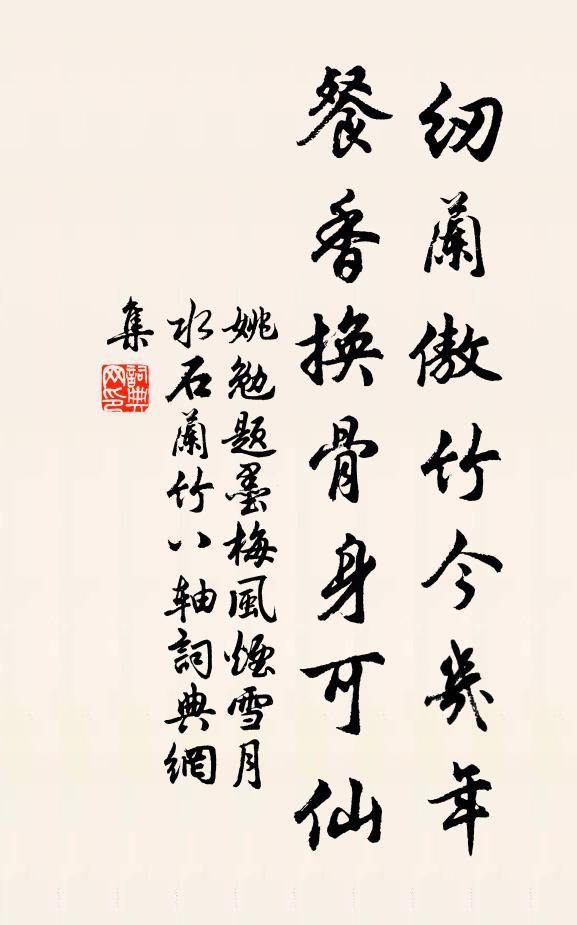 紉蘭傲竹今幾年
餐香換骨身可仙
姚勉題墨梅風煙雪月
水石蘭竹八軸詞典網
集
詞典
网印